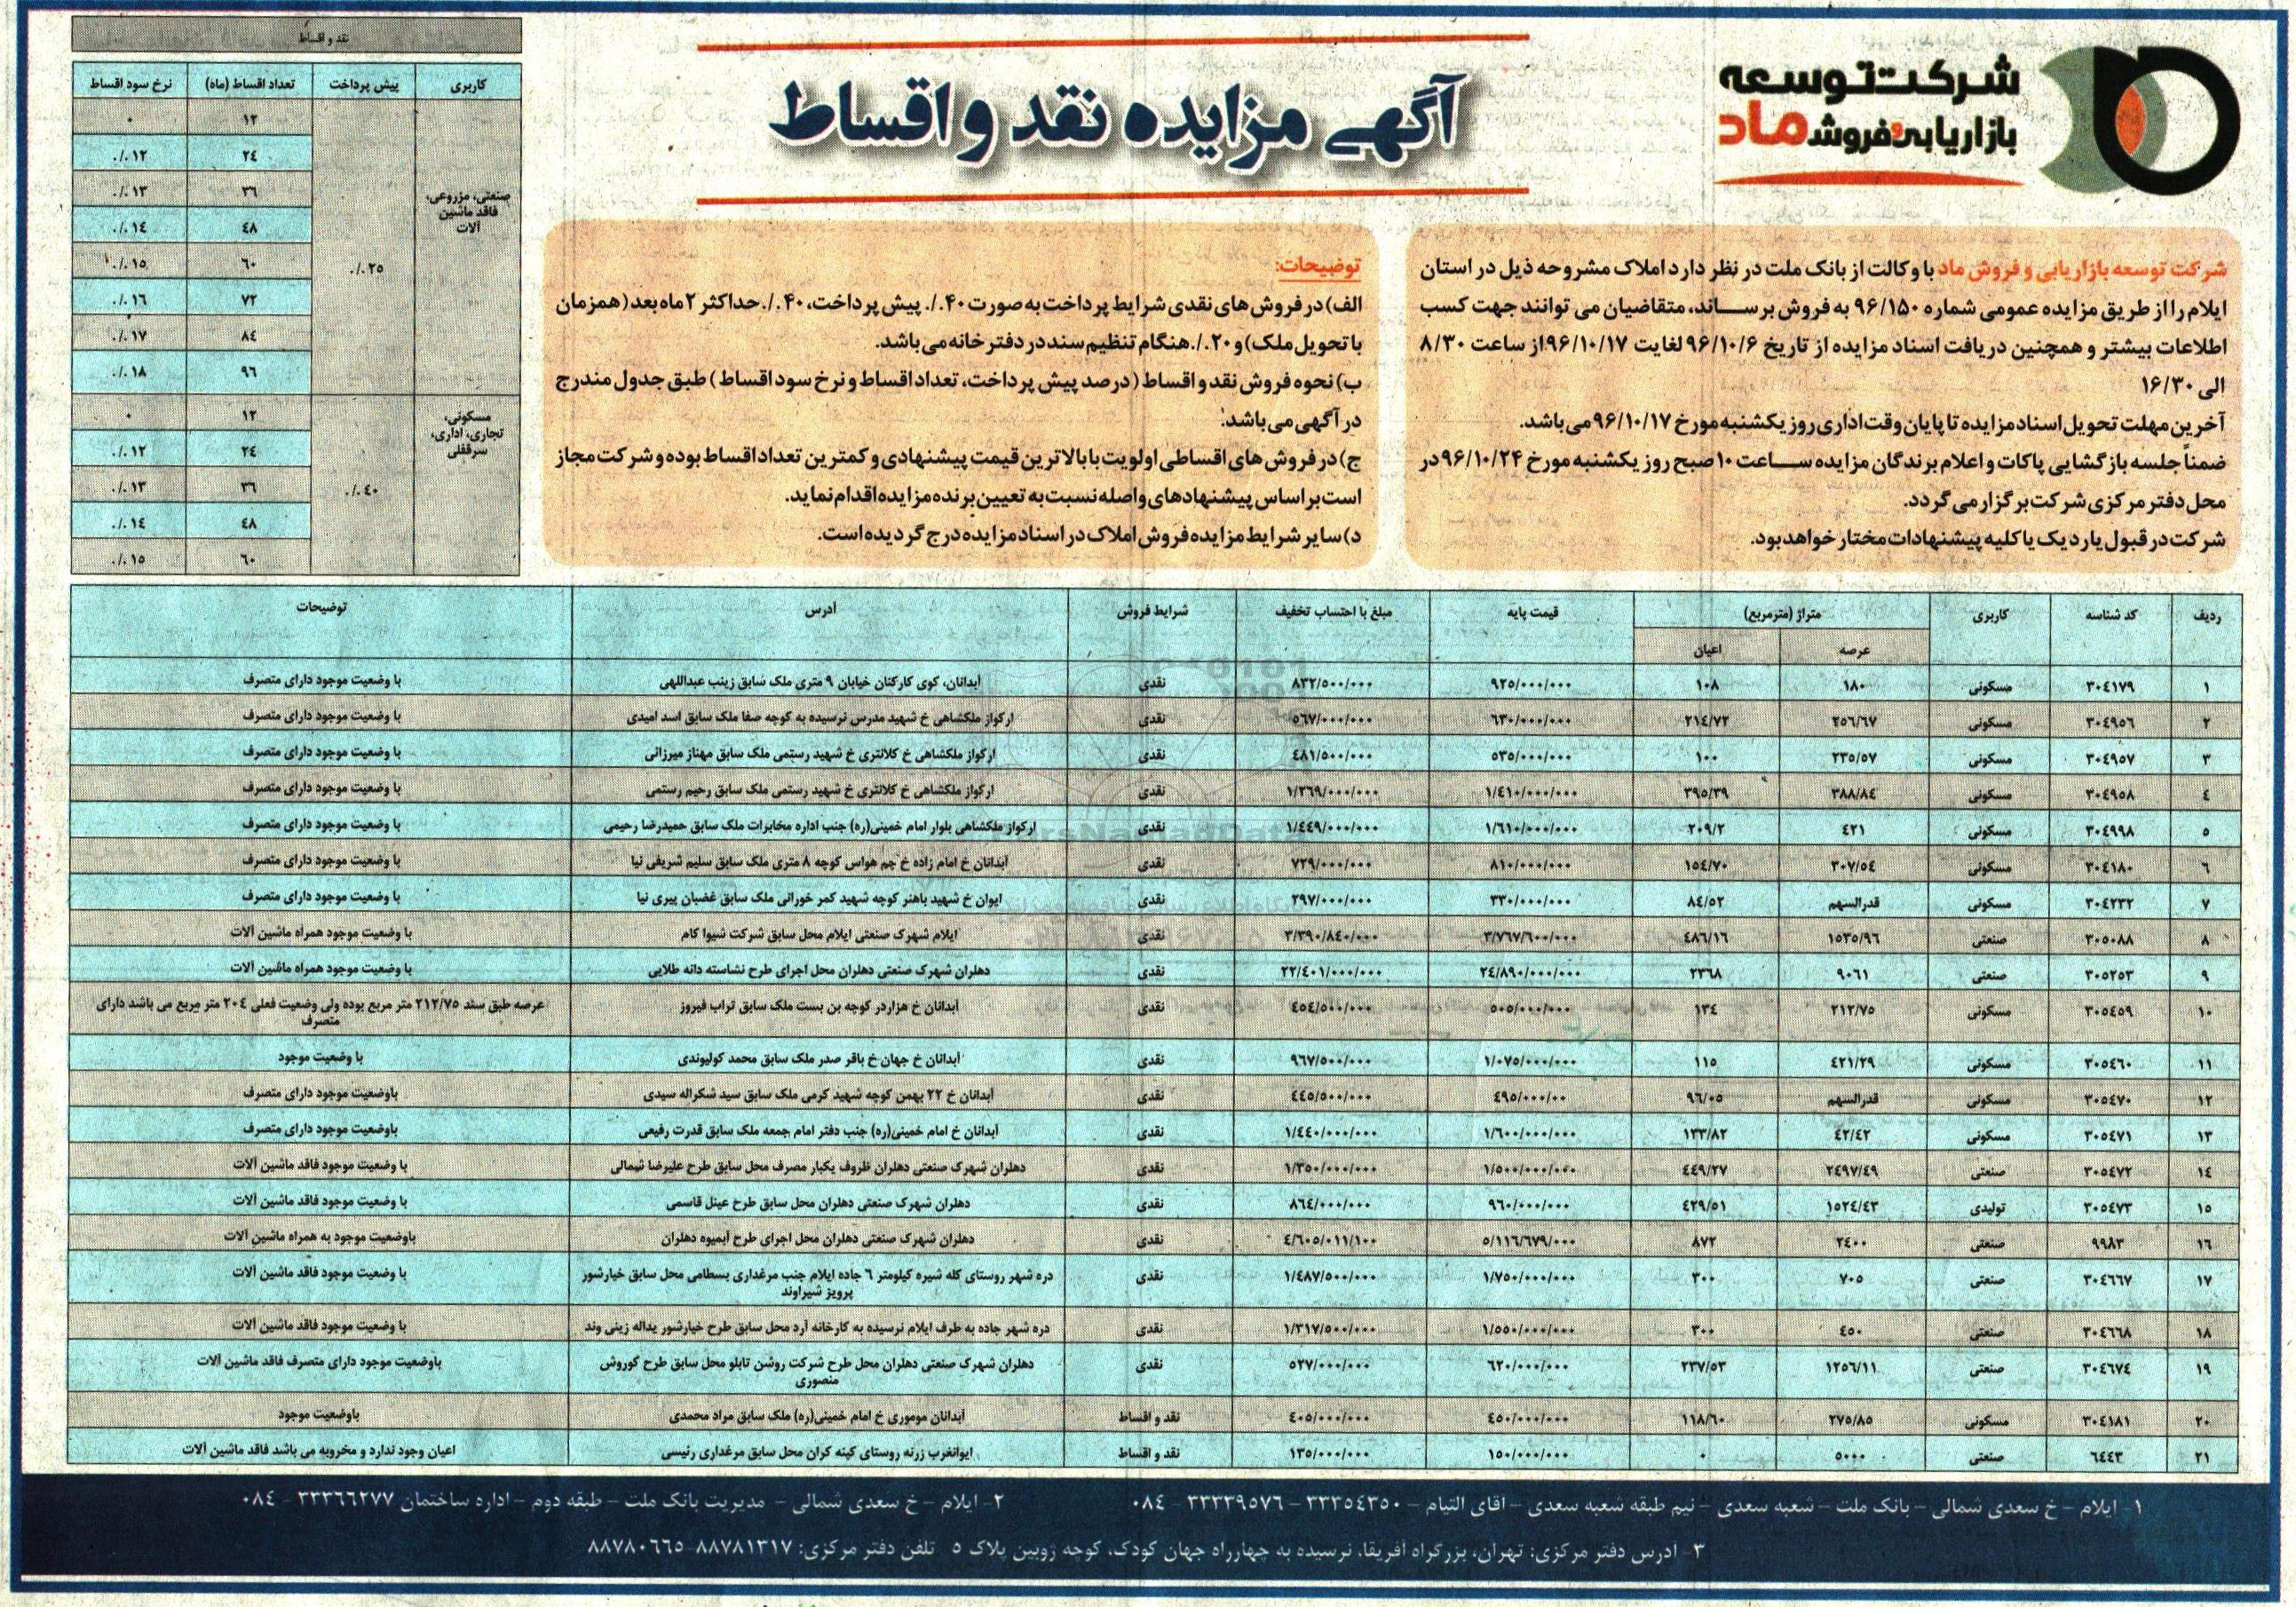 شرکت توسعه
بازاریابی و فروش ماد
آگهی مزایده نقد و اقساط
شرکت توسعه بازاریابی و فروش ماد با وکالت از بانک ملت در نظر دارد املاک مشروحه ذیل در استان
ایلام را از طریق مزایده عمومی شماره ۹۶/۱۵۰ به فروش برساند، متقاضیان می توانند جهت کسب
اطلاعات بیشتر و همچنین دریافت اسناد مزایده از تاریخ ۹۶/۱۰/۶ لغایت ۹۶/۱۰/۱۷ از ساعت ۸/۳۰
الی ۱۶/۳۰
آخرین مهلت تحویل اسناد مزایده تا پایان وقت اداری روز یکشنبه مورخ ۹۶/۱۰/۱۷ می باشد.
ضمناً جلسه بازگشایی پاکات و اعلام برندگان مزایده ساعت ۱۰ صبح روز یکشنبه مورخ ۹۶/۱۰/۲۴ در
محل دفتر مرکزی شرکت برگزار می گردد.
شرکت در قبول یا رد یک یا کلیه پیشنهادات مختار خواهد بود.
توضیحات:
الف) در فروش های نقدی شرایط پرداخت به صورت ۴۰٪ پیش پرداخت، ۴۰٪ حداکثر ۲ ماه بعد (همزمان
با تحویل ملک) و ۲۰٪ هنگام تنظیم سند در دفترخانه می باشد.
ب) نحوه فروش نقد و اقساط (درصد پیش پرداخت، تعداد اقساط و نرخ سود اقساط) طبق جدول مندرج
در آگهی می باشد.
ج) در فروش های اقساطی اولویت با بالاترین قیمت پیشنهادی و کمترین تعداد اقساط بوده و شرکت مجاز
است بر اساس پیشنهادهای واصله نسبت به تعیین برنده مزایده اقدام نماید.
د) سایر شرایط مزایده فروش املاک در اسناد مزایده درج گردیده است.
نقد و اقساط
کاربری پیش پرداخت تعداد اقساط (ماه) نرخ سود اقساط
صنعتی، مزروعی،
فاقد ماشین
آلات
۲۵٪
۱۲ ۰
۲۴ ۱۲٪
۳۶ ۱۳٪
۴۸ ۱۴٪
۶۰ ۱۵٪
۷۲ ۱۶٪
۸۴ ۱۷٪
۹۶ ۱۸٪
مسکونی،
تجاری، اداری،
سرقفلی
۴۰٪
۱۲ ۰
۲۴ ۱۲٪
۳۶ ۱۳٪
۴۸ ۱۴٪
۶۰ ۱۵٪
ردیف کد شناسه کاربری متراژ (مترمربع) قیمت پایه مبلغ با احتساب تخفیف شرایط فروش آدرس توضیحات
عرصه اعیان
۱ ۳۰۴۱۷۹ مسکونی ۱۸۰ ۱۰۸ ۹۲۵/۰۰۰/۰۰۰ ۸۳۲/۵۰۰/۰۰۰ نقدی آبدانان، کوی کارکنان خیابان ۹ متری ملک سابق زینب عبداللهی با وضعیت موجود دارای متصرف
۲ ۳۰۴۹۵۶ مسکونی ۲۵۶/۶۷ ۲۱۴/۷۲ ۶۳۰/۰۰۰/۰۰۰ ۵۶۷/۰۰۰/۰۰۰ نقدی ارکواز ملکشاهی خ شهید مدرس نرسیده به کوچه صفا ملک سابق اسد امیدی با وضعیت موجود دارای متصرف
۳ ۳۰۴۹۵۷ مسکونی ۲۳۵/۵۷ ۱۰۰ ۵۳۵/۰۰۰/۰۰۰ ۴۸۱/۵۰۰/۰۰۰ نقدی ارکواز ملکشاهی خ کلانتری خ شهید رستمی ملک سابق مهناز میرزائی با وضعیت موجود دارای متصرف
۴ ۳۰۴۹۵۸ مسکونی ۳۸۸/۸۴ ۳۹۵/۳۹ ۱/۴۱۰/۰۰۰/۰۰۰ ۱/۲۶۹/۰۰۰/۰۰۰ نقدی ارکواز ملکشاهی خ کلانتری خ شهید رستمی ملک سابق رحیم رستمی با وضعیت موجود دارای متصرف
۵ ۳۰۴۹۹۸ مسکونی ۴۲۱ ۲۰۹/۲ ۱/۶۱۰/۰۰۰/۰۰۰ ۱/۴۴۹/۰۰۰/۰۰۰ نقدی ارکواز ملکشاهی بلوار امام خمینی(ره) جنب اداره مخابرات ملک سابق حمیدرضا رحیمی با وضعیت موجود دارای متصرف
۶ ۳۰۴۱۸۰ مسکونی ۳۰۷/۵۴ ۱۵۴/۷۰ ۸۱۰/۰۰۰/۰۰۰ ۷۲۹/۰۰۰/۰۰۰ نقدی آبدانان خ امام زاده خ چم هواس کوچه ۸ متری ملک سابق سلیم شریفی نیا با وضعیت موجود دارای متصرف
۷ ۳۰۴۲۳۲ مسکونی قدرالسهم ۸۴/۵۲ ۳۳۰/۰۰۰/۰۰۰ ۲۹۷/۰۰۰/۰۰۰ نقدی ایوان خ شهید باهنر کوچه شهید کمر خورانی ملک سابق غضبان پیری نیا با وضعیت موجود دارای متصرف
۸ ۳۰۵۰۸۸ صنعتی ۱۵۳۵/۹۶ ۴۸۶/۱۶ ۳/۷۶۷/۶۰۰/۰۰۰ ۳/۳۹۰/۸۴۰/۰۰۰ نقدی ایلام شهرک صنعتی ایلام محل سابق شرکت شیوا کام با وضعیت موجود همراه ماشین آلات
۹ ۳۰۵۲۵۳ صنعتی ۹۰۶۱ ۲۳۶۸ ۲۴/۸۹۰/۰۰۰/۰۰۰ ۲۲/۴۰۱/۰۰۰/۰۰۰ نقدی دهلران شهرک صنعتی دهلران محل اجرای طرح نشاسته دانه طلایی با وضعیت موجود همراه ماشین آلات
۱۰ ۳۰۵۴۵۹ مسکونی ۲۱۲/۷۵ ۱۳۴ ۵۰۵/۰۰۰/۰۰۰ ۴۵۴/۵۰۰/۰۰۰ نقدی آبدانان خ هزاردر کوچه بن بست ملک سابق تراب فیروز عرصه طبق سند ۲۱۲/۷۵ متر مربع بوده ولی وضعیت فعلی ۲۰۴ متر مربع می باشد دارای
متصرف
۱۱ ۳۰۵۴۶۰ مسکونی ۴۲۱/۲۹ ۱۱۵ ۱/۰۷۵/۰۰۰/۰۰۰ ۹۶۷/۵۰۰/۰۰۰ نقدی آبدانان خ جهان خ باقر صدر ملک سابق محمد کولیوندی با وضعیت موجود
۱۲ ۳۰۵۴۷۰ مسکونی قدرالسهم ۹۶/۰۵ ۴۹۵/۰۰۰/۰۰ ۴۴۵/۵۰۰/۰۰۰ نقدی آبدانان خ ۲۲ بهمن کوچه شهید کرمی ملک سابق سید شکراله سیدی باوضعیت موجود دارای متصرف
۱۳ ۳۰۵۴۷۱ مسکونی ۴۲/۴۲ ۱۳۳/۸۲ ۱/۶۰۰/۰۰۰/۰۰۰ ۱/۴۴۰/۰۰۰/۰۰۰ نقدی آبدانان خ امام خمینی(ره) جنب دفتر امام جمعه ملک سابق قدرت رفیعی باوضعیت موجود دارای متصرف
۱۴ ۳۰۵۴۷۲ صنعتی ۲۴۹۷/۴۹ ۴۴۹/۲۷ ۱/۵۰۰/۰۰۰/۰۰۰ ۱/۳۵۰/۰۰۰/۰۰۰ نقدی دهلران شهرک صنعتی دهلران ظروف یکبار مصرف محل سابق طرح علیرضا شمالی با وضعیت موجود فاقد ماشین آلات
۱۵ ۳۰۵۴۷۳ تولیدی ۱۵۲۴/۴۳ ۴۲۹/۵۱ ۹۶۰/۰۰۰/۰۰۰ ۸۶۴/۰۰۰/۰۰۰ نقدی دهلران شهرک صنعتی دهلران محل سابق طرح عینل قاسمی با وضعیت موجود فاقد ماشین آلات
۱۶ ۹۹۸۳ صنعتی ۲۴۰۰ ۸۷۲ ۵/۱۱۶/۶۷۹/۰۰۰ ۴/۶۰۵/۰۱۱/۱۰۰ نقدی دهلران شهرک صنعتی دهلران محل اجرای طرح آبمیوه دهلران باوضعیت موجود به همراه ماشین آلات
۱۷ ۳۰۴۶۶۷ صنعتی ۷۰۵ ۳۰۰ ۱/۷۵۰/۰۰۰/۰۰۰ ۱/۴۸۷/۵۰۰/۰۰۰ نقدی دره شهر روستای کله شیره کیلومتر ۶ جاده ایلام جنب مرغداری بسطامی محل سابق خیارشور
پرویز شیراوند با وضعیت موجود فاقد ماشین آلات
۱۸ ۳۰۴۶۶۸ صنعتی ۴۵۰ ۳۰۰ ۱/۵۵۰/۰۰۰/۰۰۰ ۱/۳۱۷/۵۰۰/۰۰۰ نقدی دره شهر جاده به طرف ایلام نرسیده به کارخانه آرد محل سابق طرح خیارشور یداله زینی وند با وضعیت موجود فاقد ماشین آلات
۱۹ ۳۰۴۶۷۴ صنعتی ۱۲۵۶/۱۱ ۲۳۷/۵۳ ۶۲۰/۰۰۰/۰۰۰ ۵۲۷/۰۰۰/۰۰۰ نقدی دهلران شهرک صنعتی دهلران محل طرح شرکت روشن تابلو محل سابق طرح کوروش
منصوری باوضعیت موجود دارای متصرف فاقد ماشین آلات
۲۰ ۳۰۴۱۸۱ مسکونی ۲۷۵/۸۵ ۱۱۸/۶۰ ۴۵۰/۰۰۰/۰۰۰ ۴۰۵/۰۰۰/۰۰۰ نقد و اقساط آبدانان موموری خ امام خمینی(ره) ملک سابق مراد محمدی باوضعیت موجود
۲۱ ۶۴۴۳ صنعتی ۵۰۰۰ ۰ ۱۵۰/۰۰۰/۰۰۰ ۱۳۵/۰۰۰/۰۰۰ نقد و اقساط ایوانغرب زرنه روستای کینه کران محل سابق مرغداری رئیسی اعیان وجود ندارد و مخروبه می باشد فاقد ماشین آلات
۱- ایلام – خ سعدی شمالی – بانک ملت – شعبه سعدی – نیم طبقه شعبه سعدی – اقای التیام – ۳۳۳۵۴۳۵۰ – ۳۳۳۳۹۵۷۶ - ۰۸۴
۲- ایلام – خ سعدی شمالی – مدیریت بانک ملت – طبقه دوم – اداره ساختمان ۳۳۳۶۶۲۷۷ - ۰۸۴
۳- آدرس دفتر مرکزی: تهران، بزرگراه آفریقا، نرسیده به چهارراه جهان کودک، کوچه زوبین پلاک ۵ تلفن دفتر مرکزی: ۸۸۷۸۱۳۱۷-۸۸۷۸۰۶۶۵